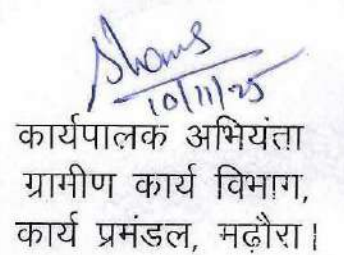 10/11/25
कार्यपालक अभियंता
ग्रामीण कार्य विभाग,
कार्य प्रमंडल, मढ़ौरा।